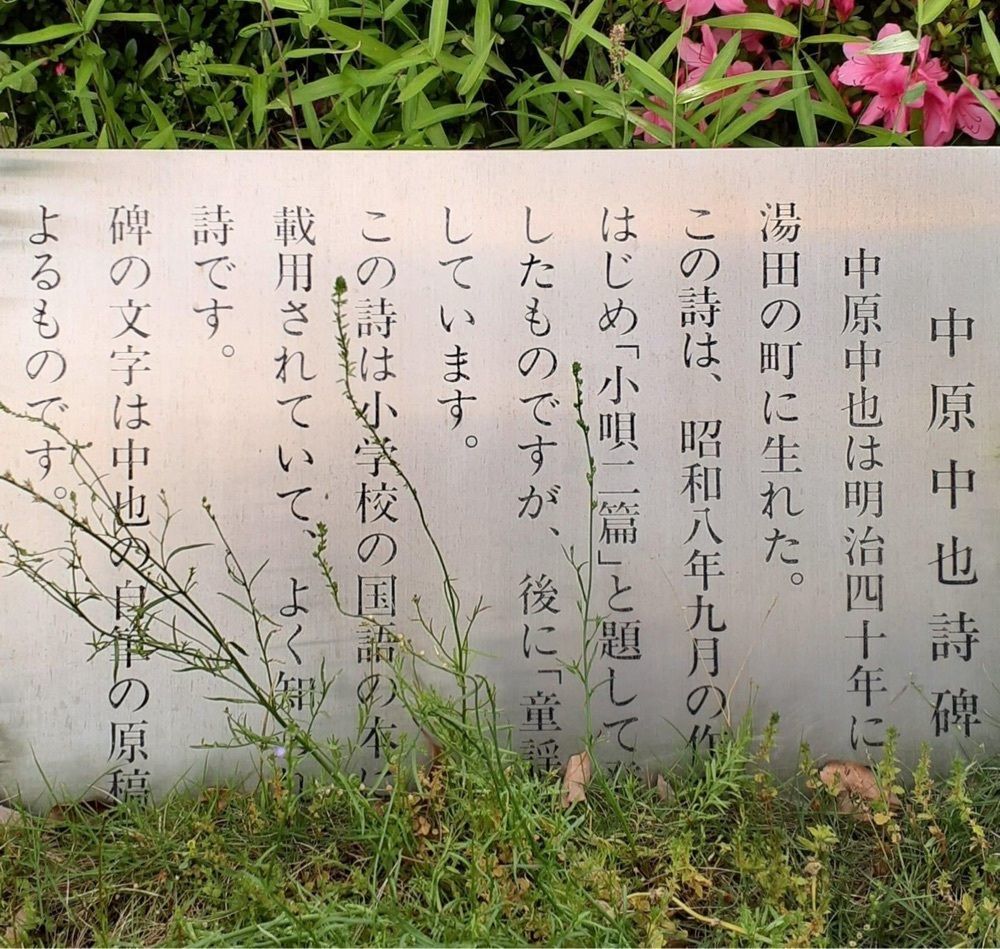 中原中也詩碑
中原中也は明治四十年に
湯田の町に生れた。
この詩は、昭和八年九月の作
はじめ「小唄二篇」と題して
したものですが、後に「童謡
しています。
この詩は小学校の国語の本に
載用されていて、よく知られ
詩です。
碑の文字は中也の自筆の原稿
よるものです。